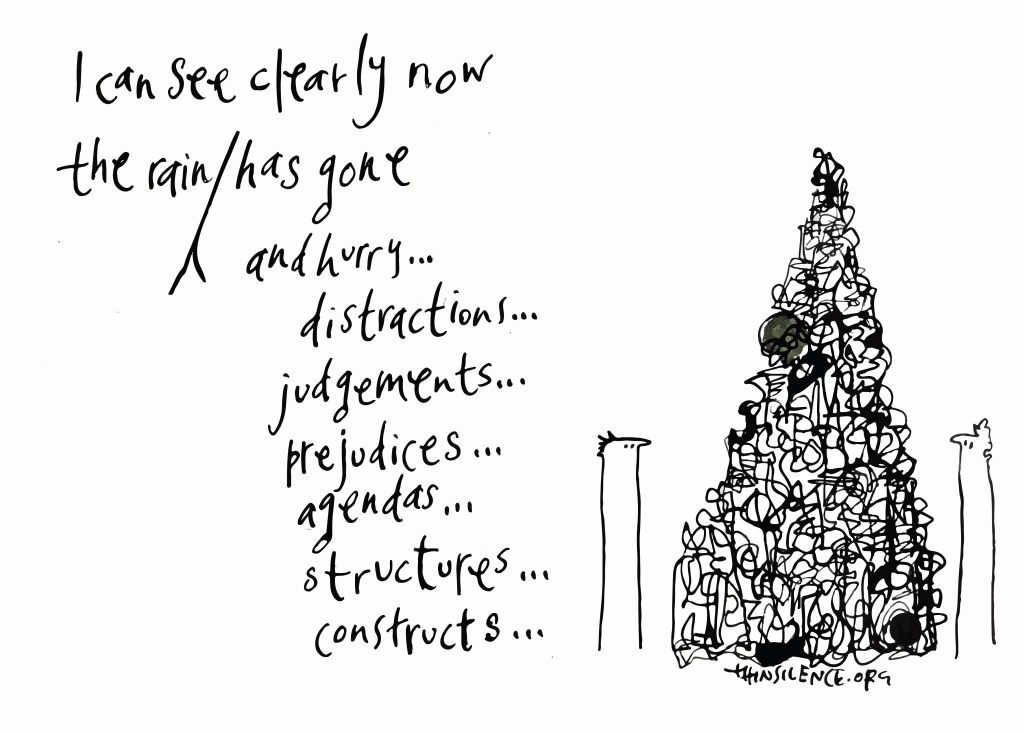 I can see clearly now
the rain/has gone
and hurry...
distractions...
judgements...
prejudices...
agendas...
structures...
constructs...
THINSILENCE.ORG